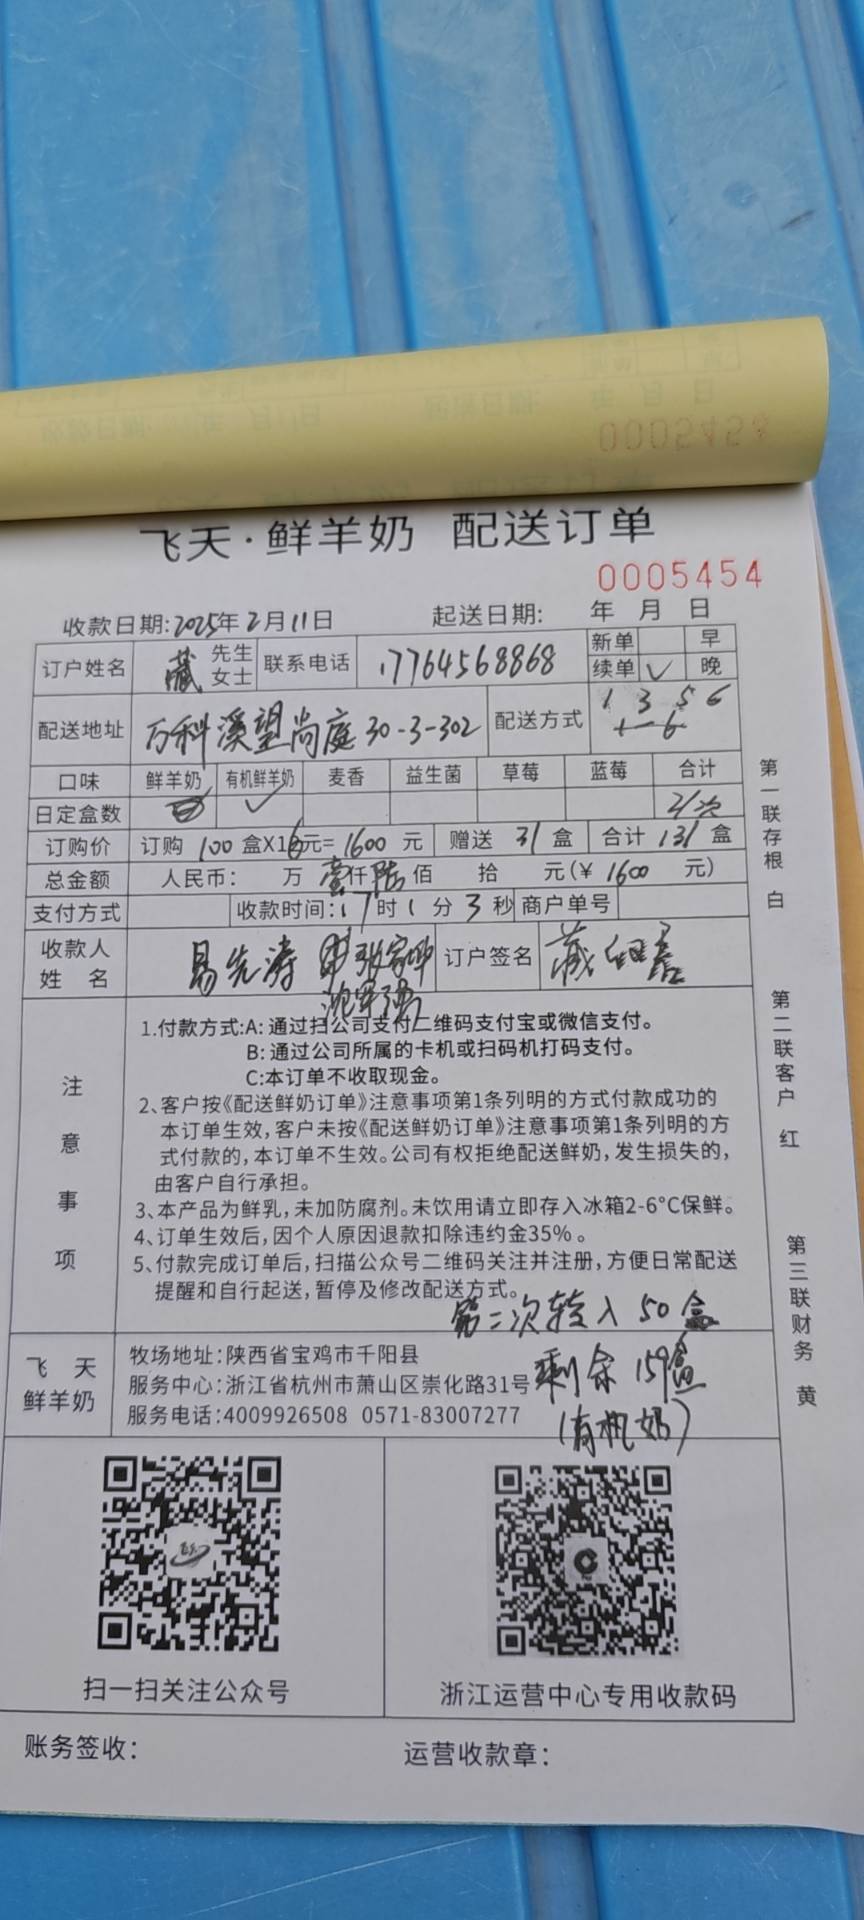 飞天·鲜羊奶 配送订单
0005454
收款日期:2025年2月11日 起送日期: 年 月 日
订户姓名 藏 先生 女士 联系电话 17764568868 新单 早
续单 ✓ 晚
配送地址 万科溪望尚庭30-3-302 配送方式 1 3 5 6
口味 鲜羊奶 有机鲜羊奶 麦香 益生菌 草莓 蓝莓 合计
日定盒数 ✓ 2/次
订购价 订购 100 盒X16元= 1600 元 赠送 31 盒 合计 131 盒
总金额 人民币: 万 壹仟陆佰 拾 元(¥ 1600 元)
支付方式 收款时间:17时1分3秒 商户单号
收款人 姓名 易先涛 张家晔 订户签名 藏
注意事项
1.付款方式:A:通过扫公司支付二维码支付宝或微信支付。
B:通过公司所属的卡机或扫码机打码支付。
C:本订单不收取现金。
2、客户按《配送鲜奶订单》注意事项第1条列明的方式付款成功的
本订单生效,客户未按《配送鲜奶订单》注意事项第1条列明的方
式付款的,本订单不生效。公司有权拒绝配送鲜奶,发生损失的,
由客户自行承担。
3、本产品为鲜乳,未加防腐剂。未饮用请立即存入冰箱2-6°C保鲜。
4、订单生效后,因个人原因退款扣除违约金35%。
5、付款完成订单后,扫描公众号二维码关注并注册,方便日常配送
提醒和自行起送,暂停及修改配送方式。
第二次转入50盒
剩余159盒
(有机奶)
飞天
鲜羊奶
牧场地址:陕西省宝鸡市千阳县
服务中心:浙江省杭州市萧山区崇化路31号
服务电话:4009926508 0571-83007277
扫一扫关注公众号 浙江运营中心专用收款码
账务签收: 运营收款章:
第一联存根 白
第二联客户 红
第三联财务 黄